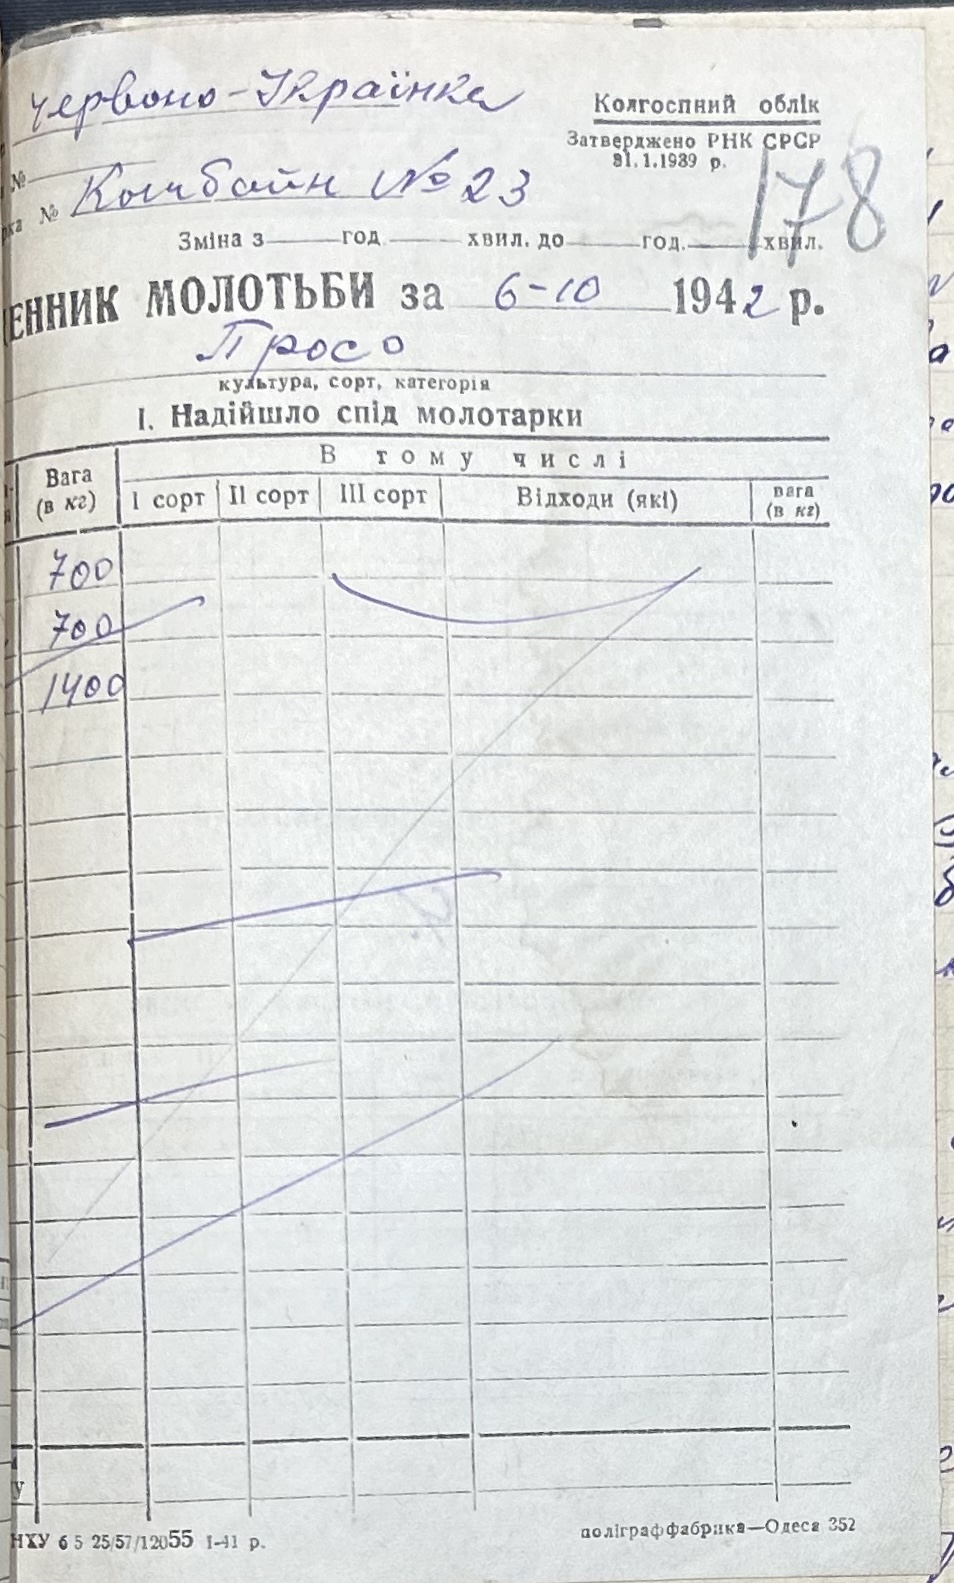 Червоно-Українка
Колгоспний облік
Затверджено РНК СРСР
31.1.1939 р.
178
№
№ Комбайн №23
Зміна з год хвил. до год. хвил.
ЕННИК МОЛОТЬБИ за 6-10 1942 р.
Просо
культура, сорт, категорія
І. Надійшло спід молотарки
Вага (в кг) В тому числі
І сорт ІІ сорт ІІІ сорт Відходи (які) вага (в кг)
700
700
1400
У
НХУ 6 5 25/57/12055 І-41 р.
поліграффабрика—Одеса 352